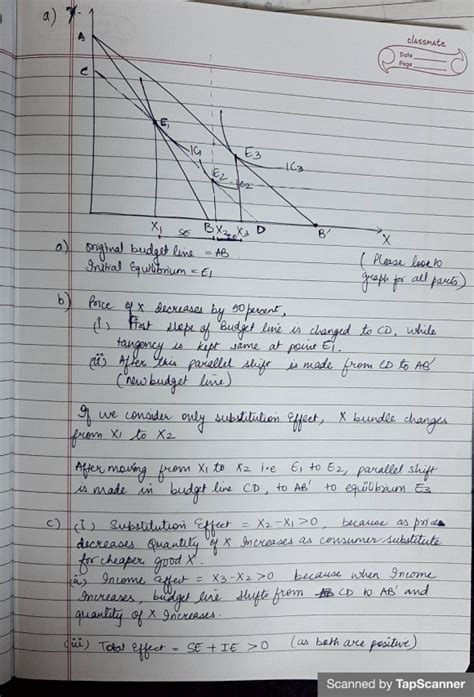 a)
Y
classmate
Date
Page
A
C
E1
IC1
E2
E3
IC3
X1 SE B X2 X3 D B' X
a) Original budget line = AB
Initial Equilibrium = E1
(Please look to
graph for all parts)
b) Price of X decreases by 50 percent,
(i) First slope of Budget line is changed to CD, while
tangency is kept same at point E1.
(ii) After this parallel shift is made from CD to AB'
(new budget line)
If we consider only substitution Effect, X bundle changes
from X1 to X2
After moving from X1 to X2 i.e E1 to E2, parallel shift
is made in budget line CD, to AB' to equilibrium E3
c) (I) Substitution Effect = X2-X1>0, because as price
decreases Quantity of X Increases as consumer substitute
for cheaper good X.
(ii) Income effect = X3-X2>0 because when Income
Increases, budget line shifts from CD to AB' and
quantity of X Increases.
(iii) Total Effect = SE + IE > 0 (as both are positive)
Scanned by TapScanner